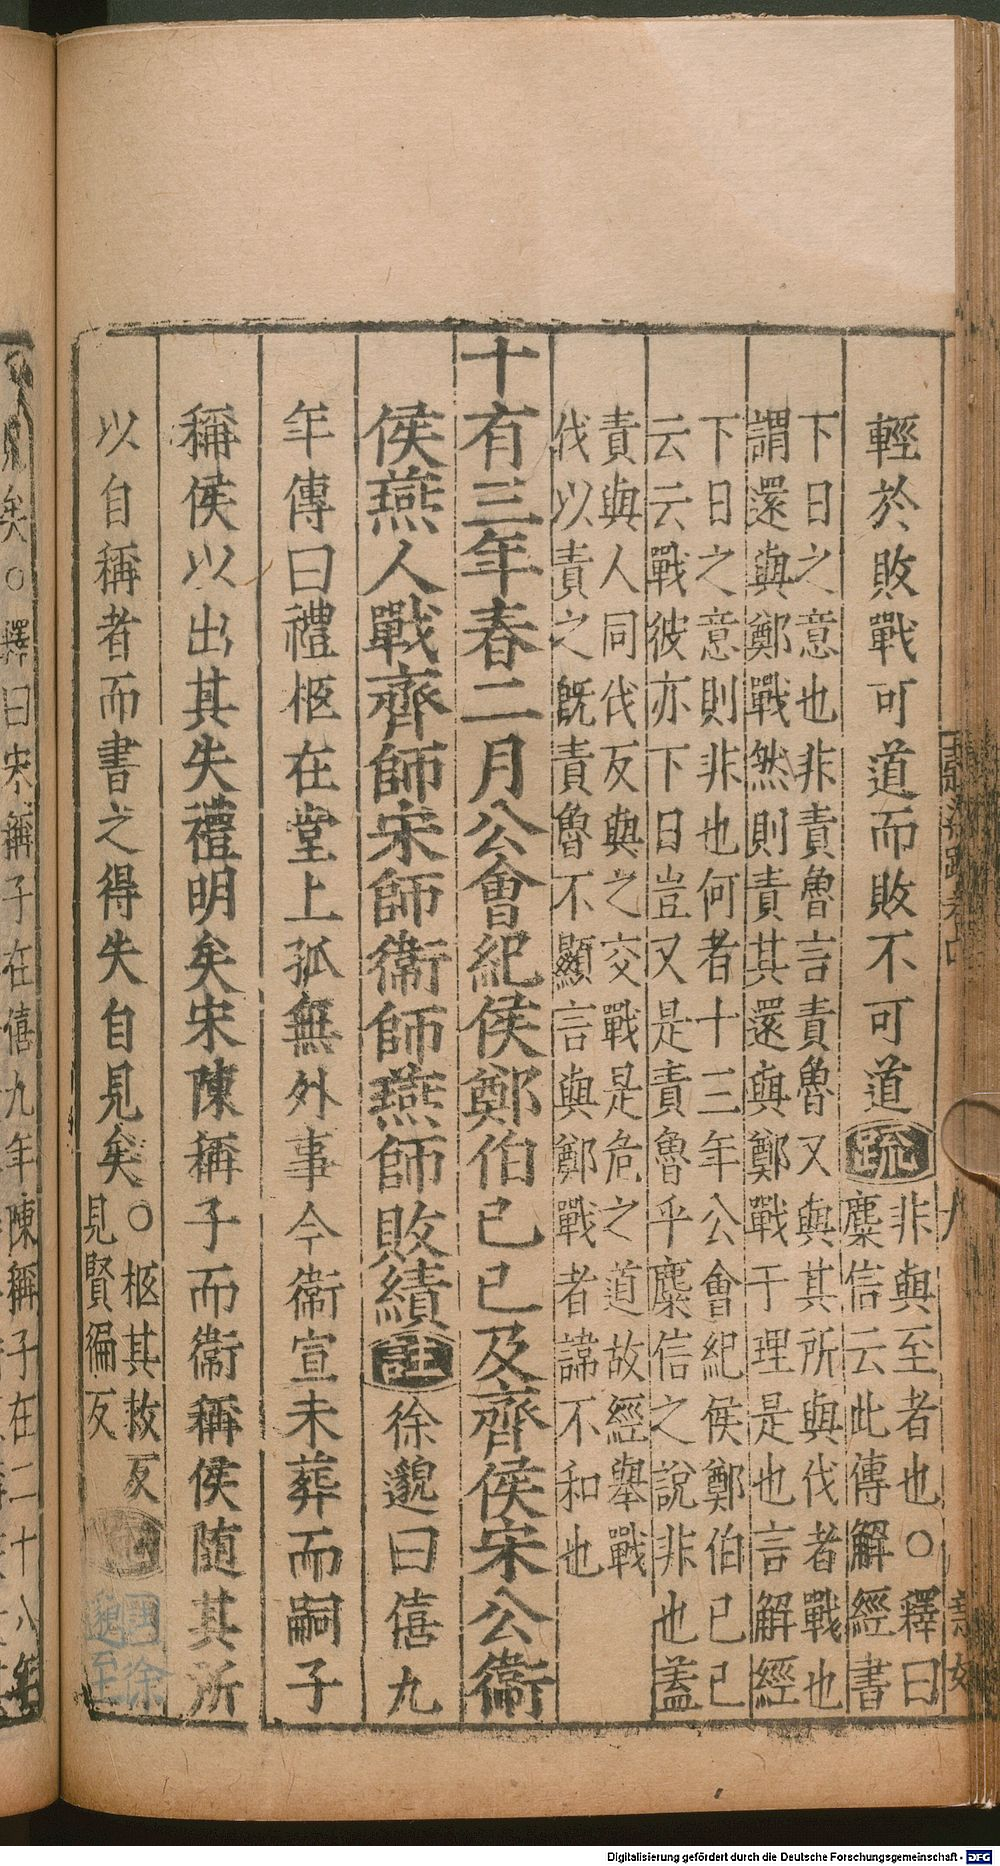 輕於敗戰可道而敗不可道疏非與至者也○釋曰
麋信云此傳解經書
下日之意也非責魯言責魯又與其所與伐者戰也
謂還與鄭戰然則責其還與鄭戰于理是也言解經
下日之意則非也何者十三年公會紀侯鄭伯已已
云云戰彼亦下日豈又是責魯乎麋信之說非也蓋
責與人同伐反與之交戰是危之道故經舉戰
伐以責之旣責魯不顯言與鄭戰者諱不和也
十有三年春二月公會紀侯鄭伯已已及齊侯宋公衞
侯燕人戰齊師宋師衞師燕師敗績註徐邈曰僖九
年傳曰禮柩在堂上孤無外事今衞宣未葬而嗣子
稱侯以出其失禮明矣宋陳稱子而衞稱侯隨其所
以自稱者而書之得失自見矣○柩其救反
見賢徧反
註徐
邈至
Digitalisierung gefördert durch die Deutsche Forschungsgemeinschaft - DFG